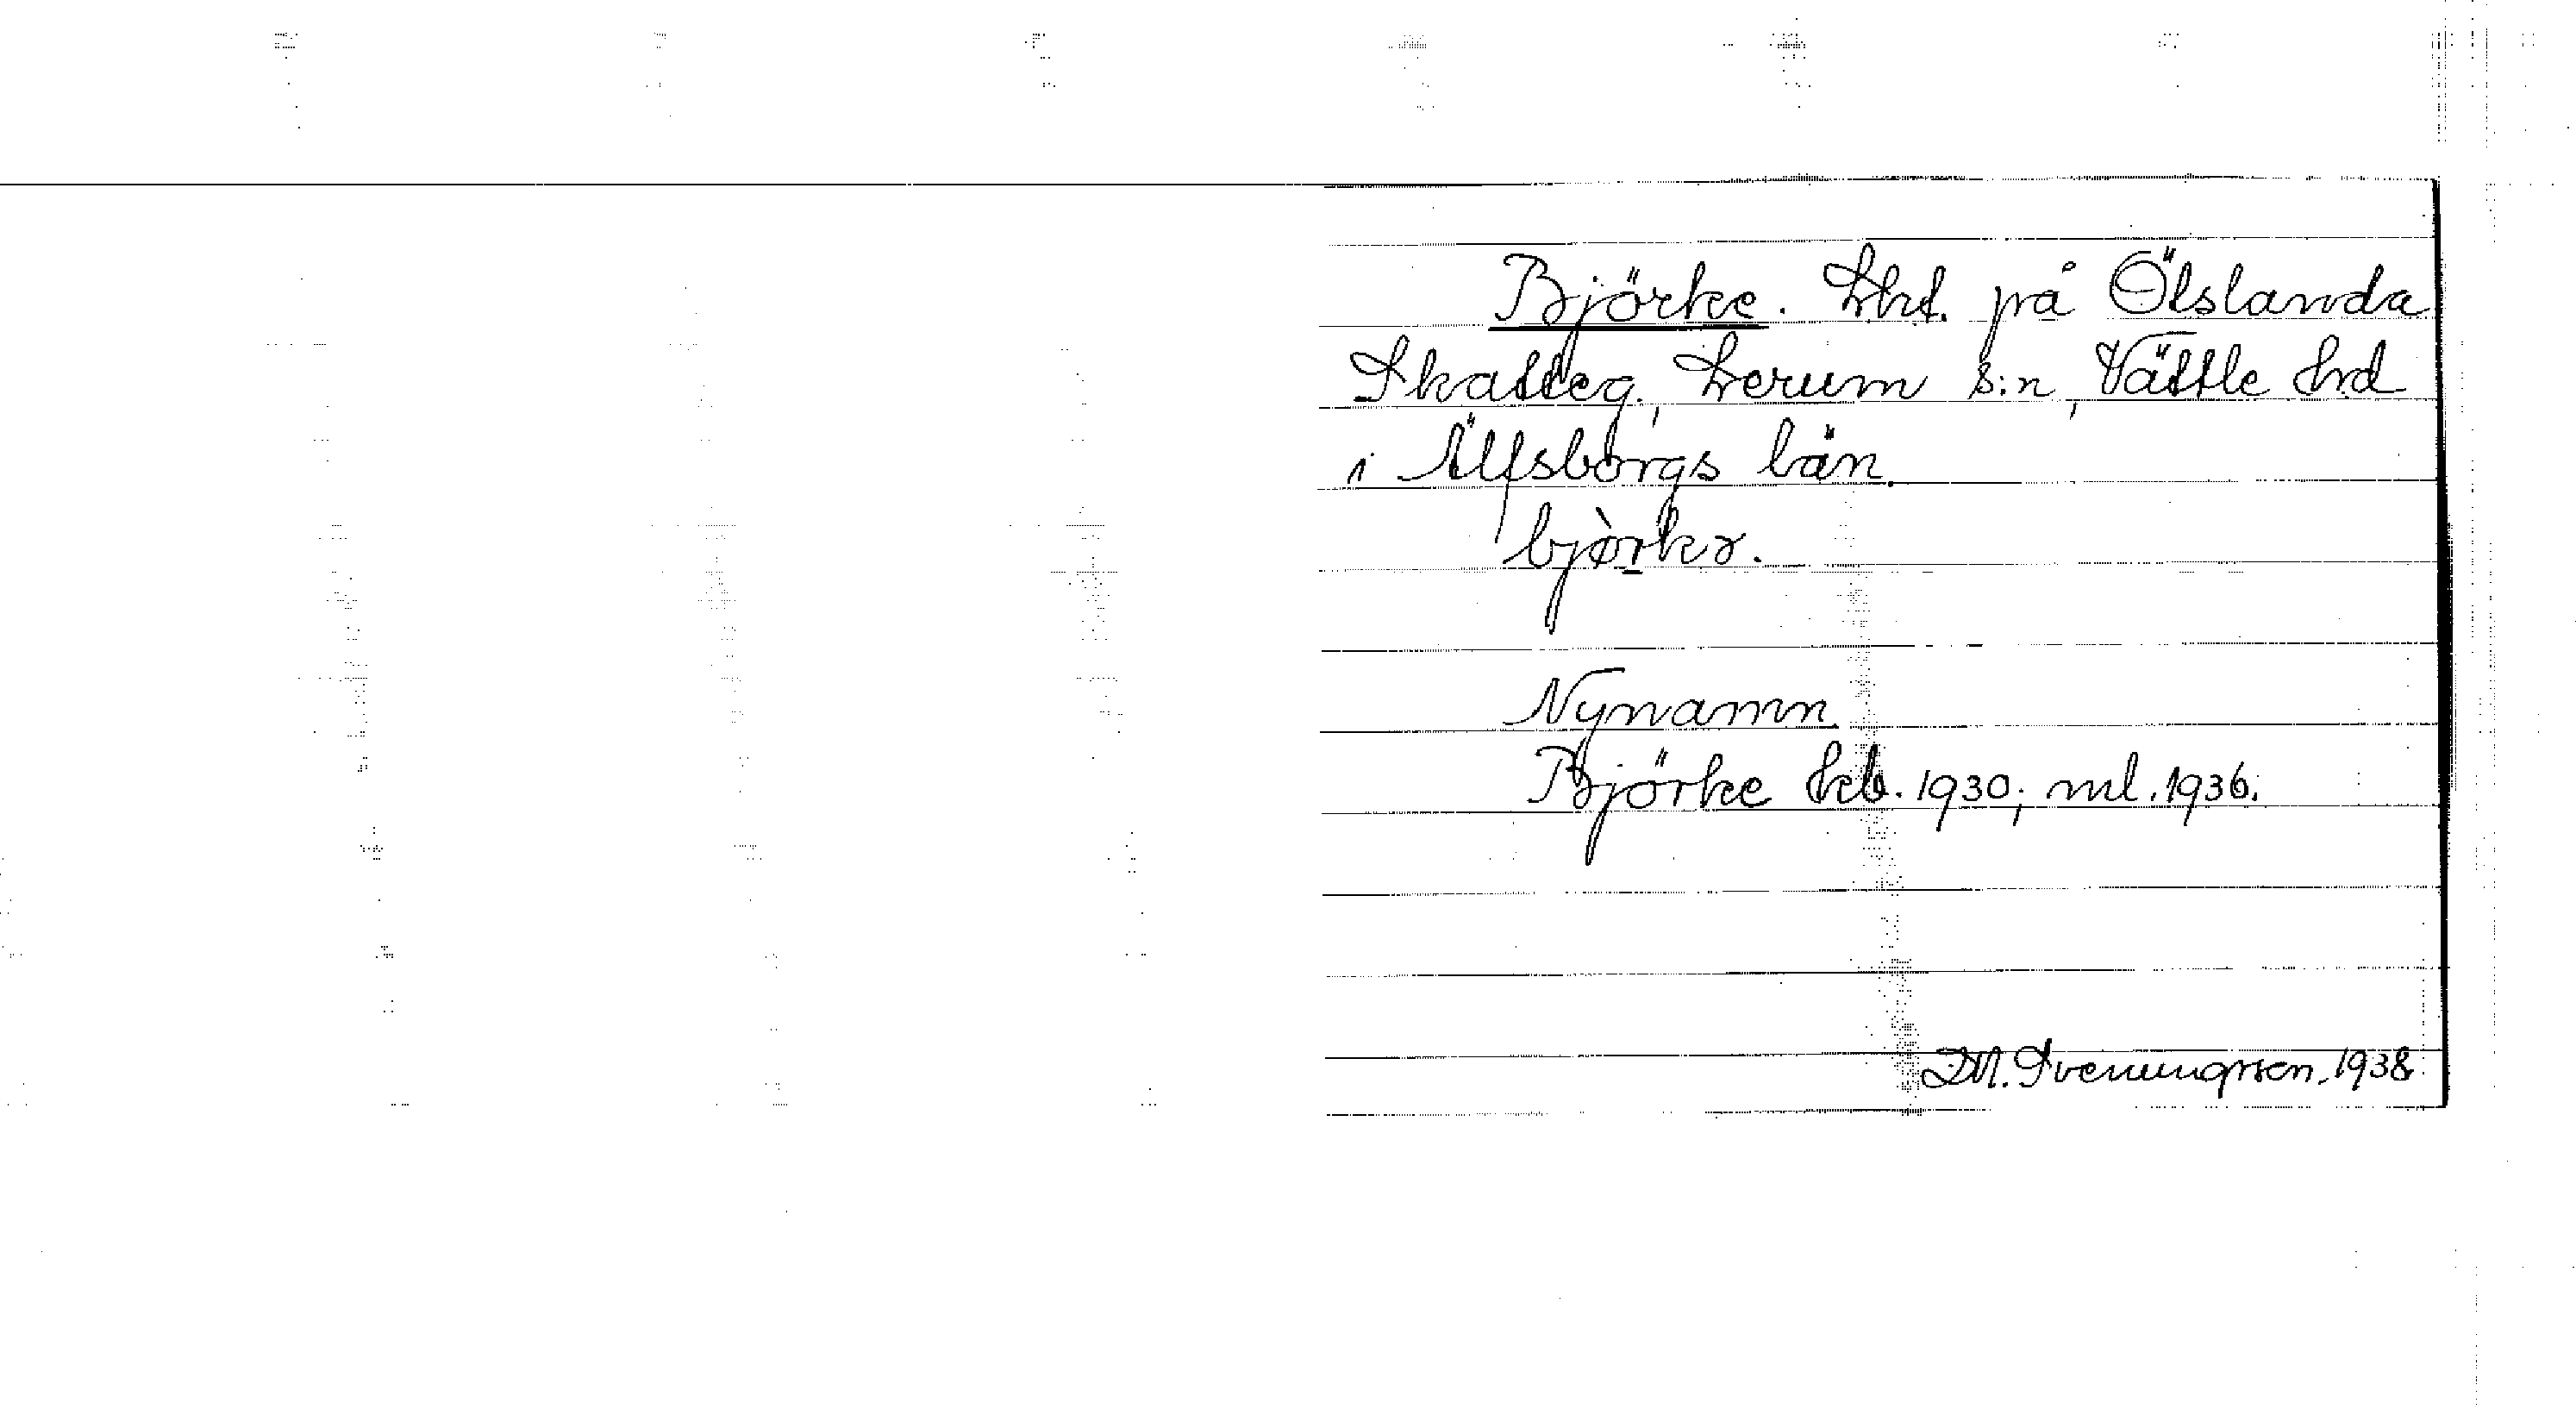 Björke. Lht. på Ölslanda
Skatteg., Lerum s:n, Vättle hd
i Älfsborgs län.
bjòrkə.
Nynamn.
Björke hfb. 1930; ml. 1936.
D.M. Svenningsson, 1938